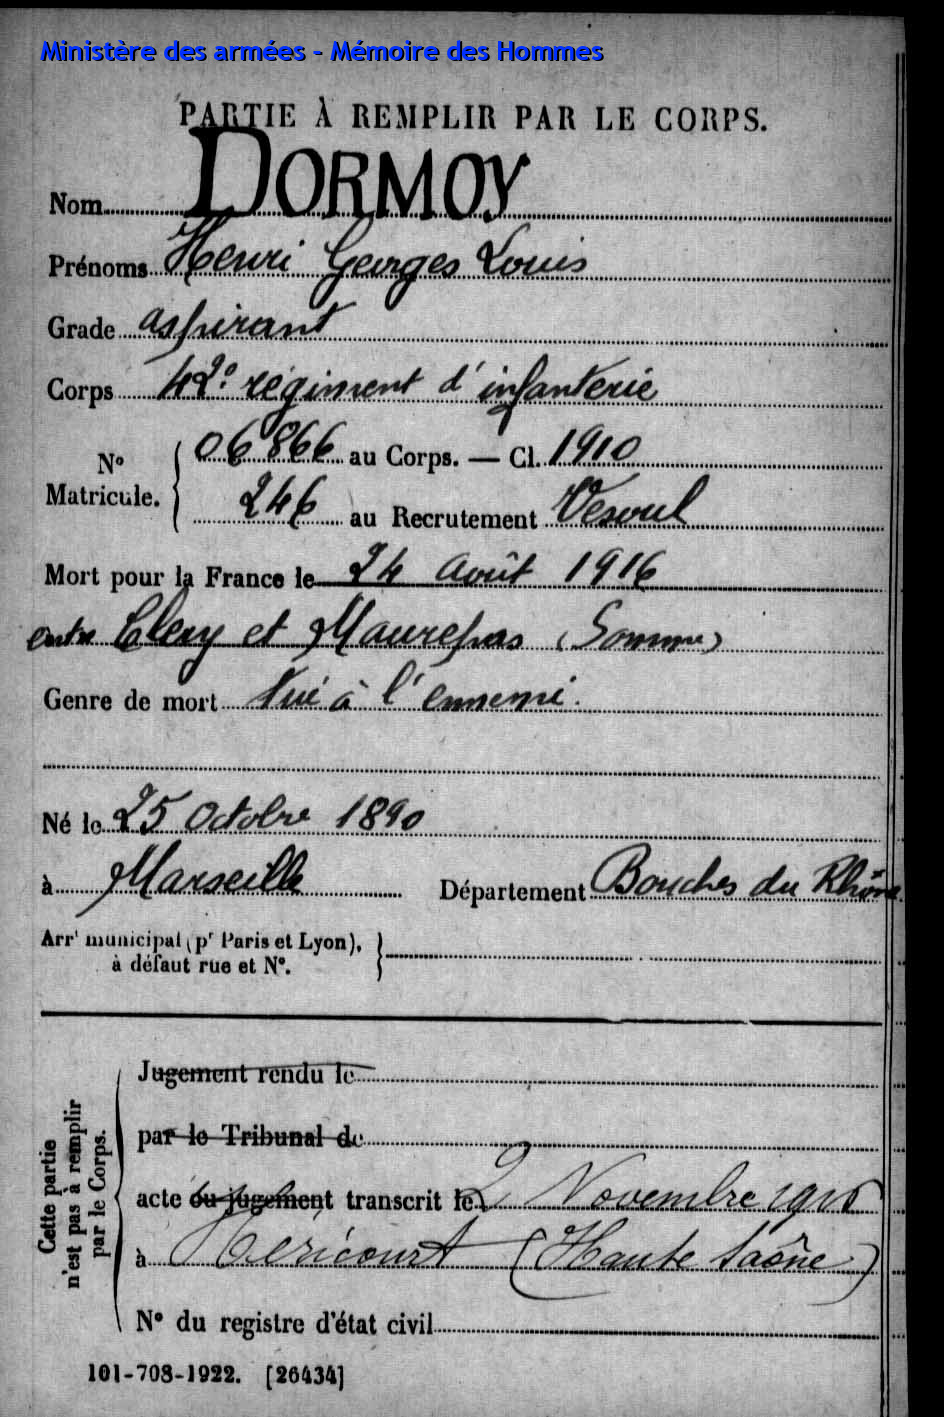 Ministère des armées - Mémoire des Hommes
PARTIE À REMPLIR PAR LE CORPS.
Nom DORMOY
Prénoms Henri Georges Louis
Grade aspirant
Corps 42e régiment d'infanterie
No Matricule. { 06866 au Corps. — Cl. 1910
246 au Recrutement Vesoul
Mort pour la France le 24 Août 1916
entre Clery et Maurepas (Somme)
Genre de mort Tué à l'ennemi.
Né le 25 Octobre 1890
à Marseille Département Bouches du Rhône
Arrt municipal (pr Paris et Lyon),
à défaut rue et No.
Cette partie
n'est pas à remplir
par le Corps.
Jugement rendu le
par le Tribunal de
acte ou jugement transcrit le 2 Novembre 1916
à Héricourt (Haute Saône)
No du registre d'état civil
101-708-1922. [26434]